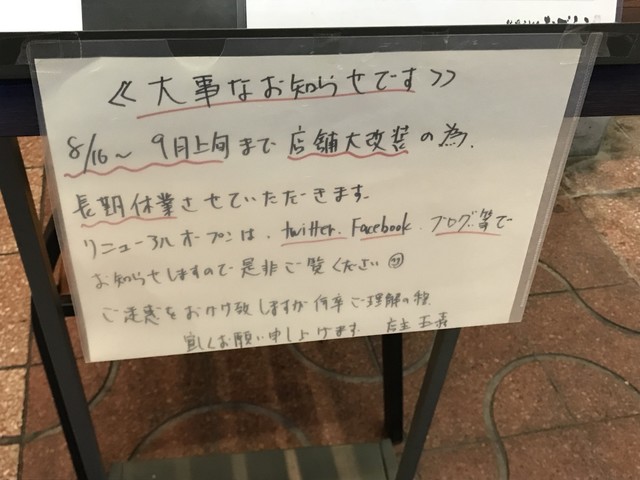 ≪大事なお知らせです≫
8/16〜 9月上旬まで 店舗大改装の為、
長期休業させていただきます。
リニューアルオープンは、twitter、Facebook、ブログ等で
お知らせしますので是非ご覧ください
ご迷惑をおかけ致しますが何卒ご理解の程
宜しくお願い申し上げます 店主